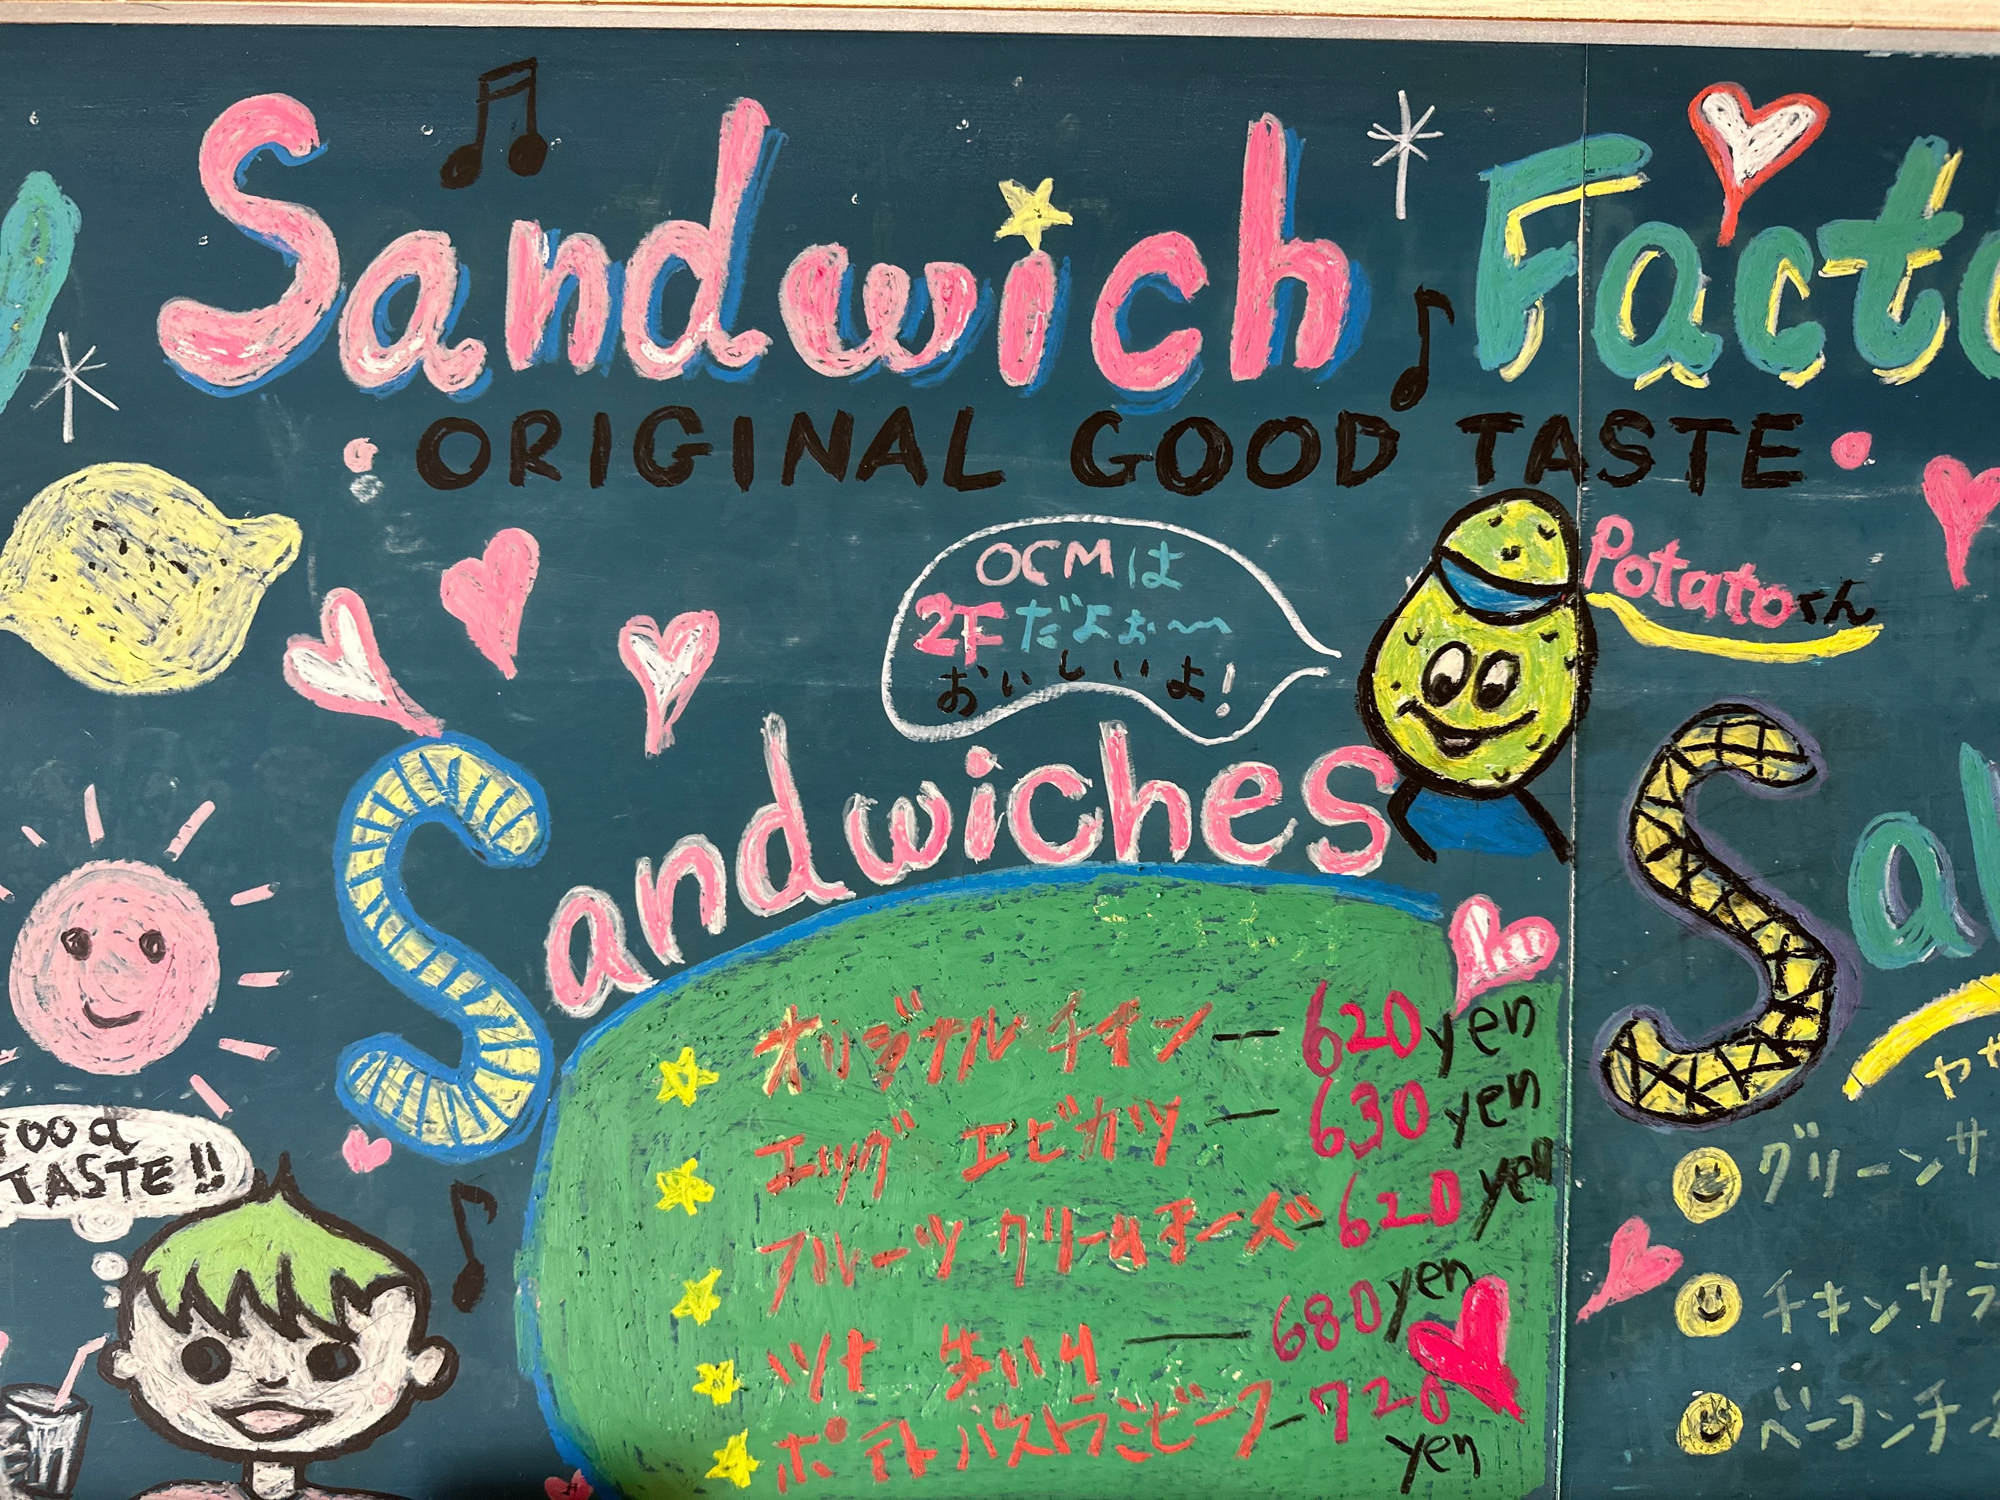 Sandwich Facto
ORIGINAL GOOD TASTE
OCMは
2Fだよぉ〜
おいしいよ!
Potatoくん
Sandwiches
オリジナル チキン — 620yen
エッグ エビカツ — 630 yen
フルーツ クリームチーズ — 620 yen
ツナ — 680yen
ポテト パストラミビーフ — 720
yen
FOOD
TASTE!!
Sal
グリーンサ
チキンサラ
ベーコンチー